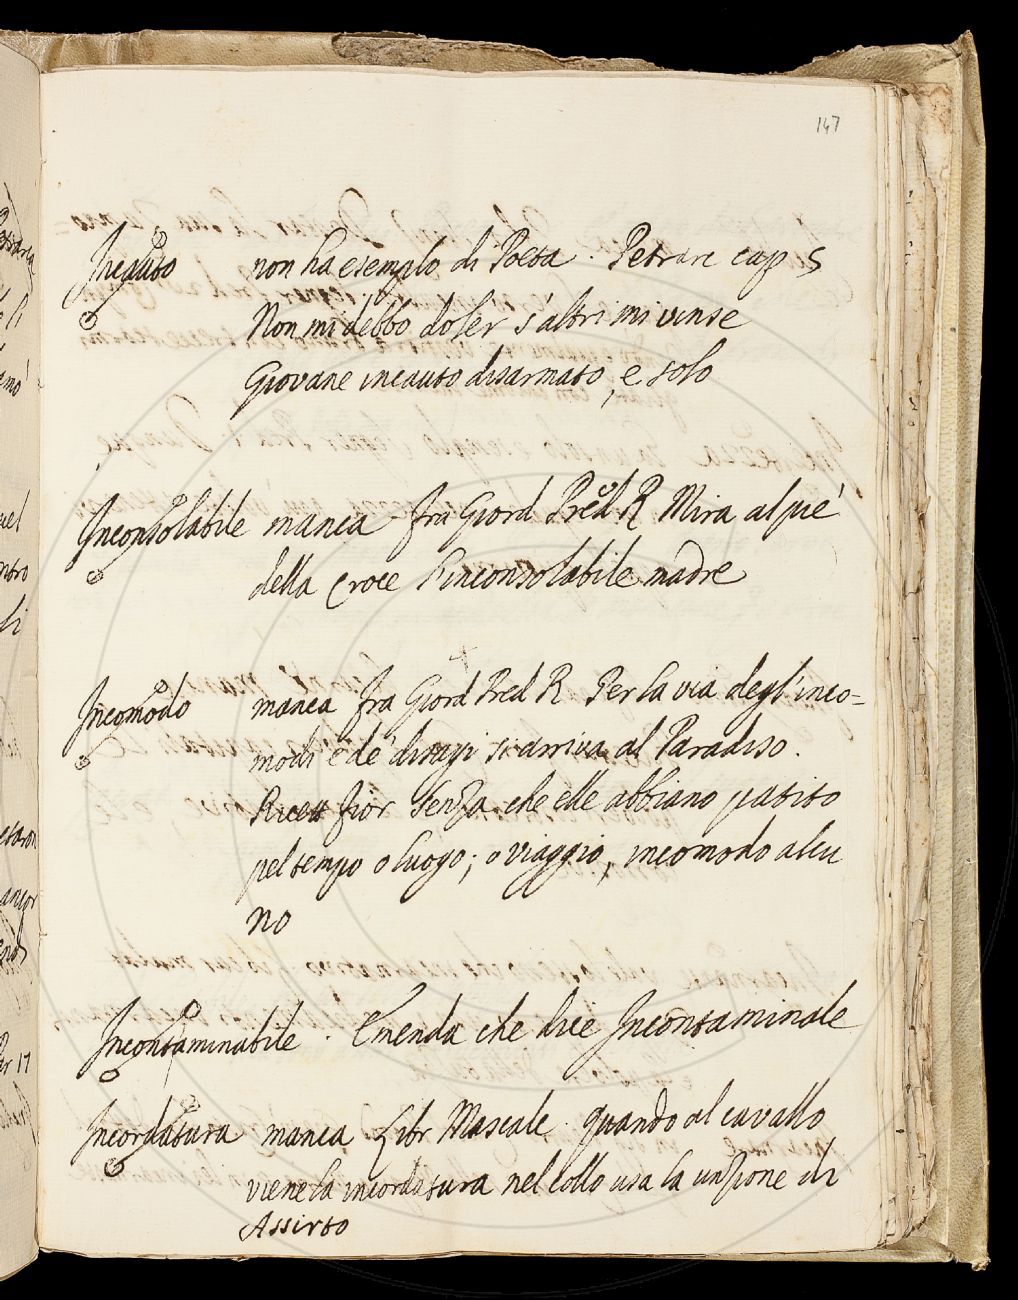 147
Incauto non ha esemplo di Poeta. Petrarc cap 5
Non mi debbo doler s'altri mi vinse
Giovane incauto disarmato, e solo
Inconsolabile manca fra Giord Pred R Mira al piè
della croce l'inconsolabile madre
Incomodo manca fra Giord Pred R Per la via degl'inco-
modi e de' disagi si arriva al Paradiso.
Ricett fior senza che elle abbiano patito
pel tempo o luogo; o viaggio, incomodo alcu
no
Incontaminabile. Emenda che dice Incontaminale
Incordatura manca Libr Mascalc. quando al cavallo
viene la incordatura nel collo usa la unzione di
Assirto